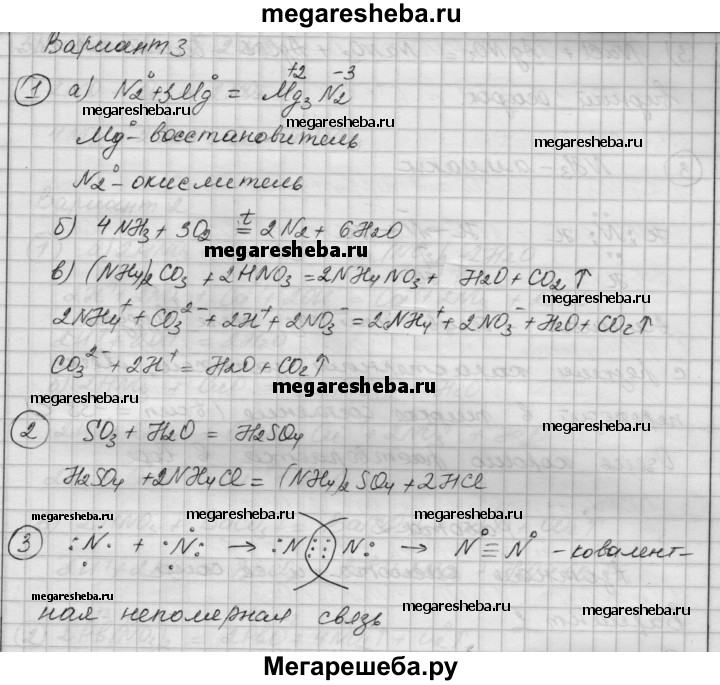 megaresheba.ru
Вариант 3
1 а) N₂⁰ + 3Mg⁰ = Mg₃⁺² N₂⁻³
megaresheba.ru megaresheba.ru
Mg⁰ - восстановитель
megaresheba.ru
N₂⁰ - окислитель
б) 4NH₃ + 3O₂ =ᵗ 2N₂ + 6H₂O
megaresheba.ru
в) (NH₄)₂CO₃ + 2HNO₃ = 2NH₄NO₃ + H₂O + CO₂↑
megaresheba.ru
2NH₄⁺ + CO₃²⁻ + 2H⁺ + 2NO₃⁻ = 2NH₄⁺ + 2NO₃⁻ + H₂O + CO₂↑
CO₃²⁻ + 2H⁺ = H₂O + CO₂↑
megaresheba.ru
megaresheba.ru
2 SO₃ + H₂O = H₂SO₄
H₂SO₄ + 2NH₄Cl = (NH₄)₂SO₄ + 2HCl
megaresheba.ru megaresheba.ru megaresheba.ru
3 :N· + ·N: → :N(:::)N: → N⁰≡N⁰ - ковалент-
megaresheba.ru megaresheba.ru
ная неполярная связь
megaresheba.ru
Мегарешеба.ру